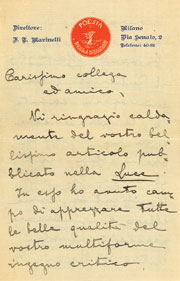 Direttore:
F. T. Marinetti
POESIA
Milano
Via Senato, 2
Telefono: 40-81
Carissimo collega
ed amico,
Vi ringrazio calda-
mente del vostro bel-
lissimo articolo pub-
blicato nella Luce.
In esso ho avuto cam-
po di apprezzare tutte
le belle qualità del
vostro multiforme
ingegno critico.